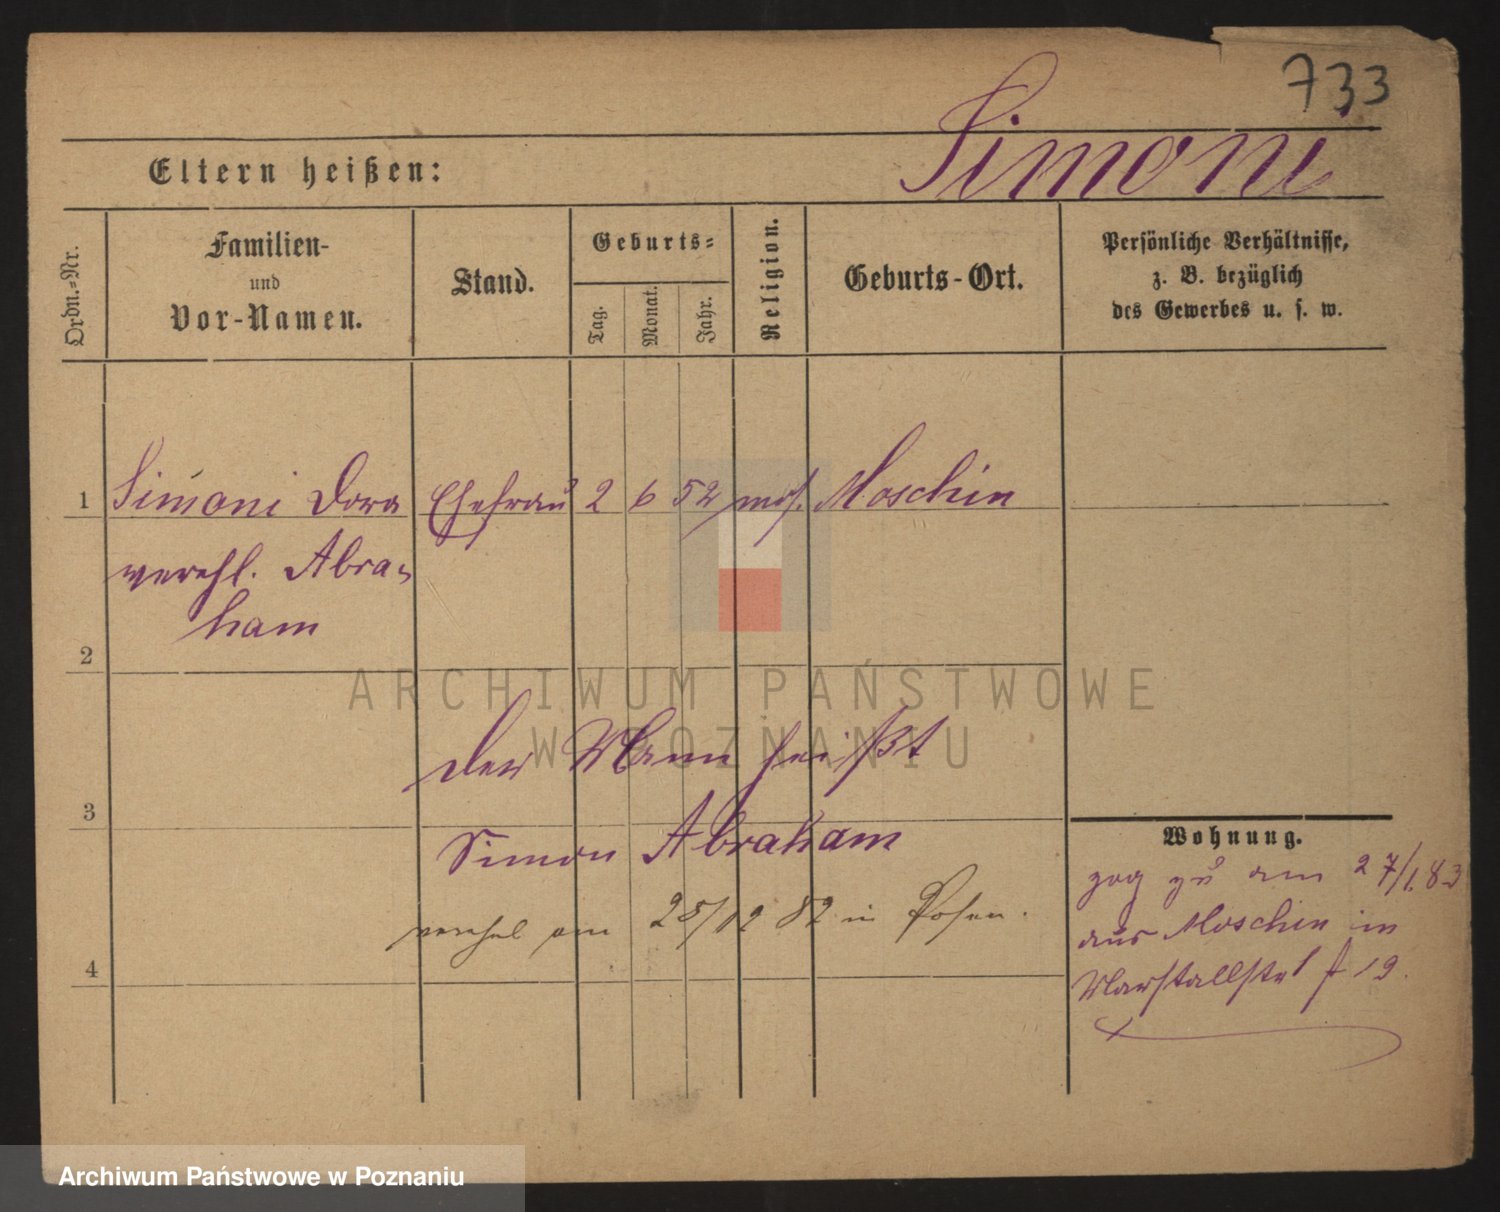 733
Simoni
Eltern heißen:
Ordn.-Nr.
Familien-
und
Vor-Namen.
Stand.
Geburts-
Tag.
Monat.
Jahr.
Religion.
Geburts-Ort.
Persönliche Verhältnisse,
z. B. bezüglich
des Gewerbes u. s. w.
1 Simoni Dora Ehefrau 2 6 52 mos. Moschin
verehl. Abra-
ham
2
Der Mann heißt
3
Simon Abraham
verehel am 25/12 82 in Posen.
4
Wohnung.
zog zu am 27/1.83
aus Moschin in
Marstallstr 19.
ARCHIWUM PAŃSTWOWE
W POZNANIU
Archiwum Państwowe w Poznaniu